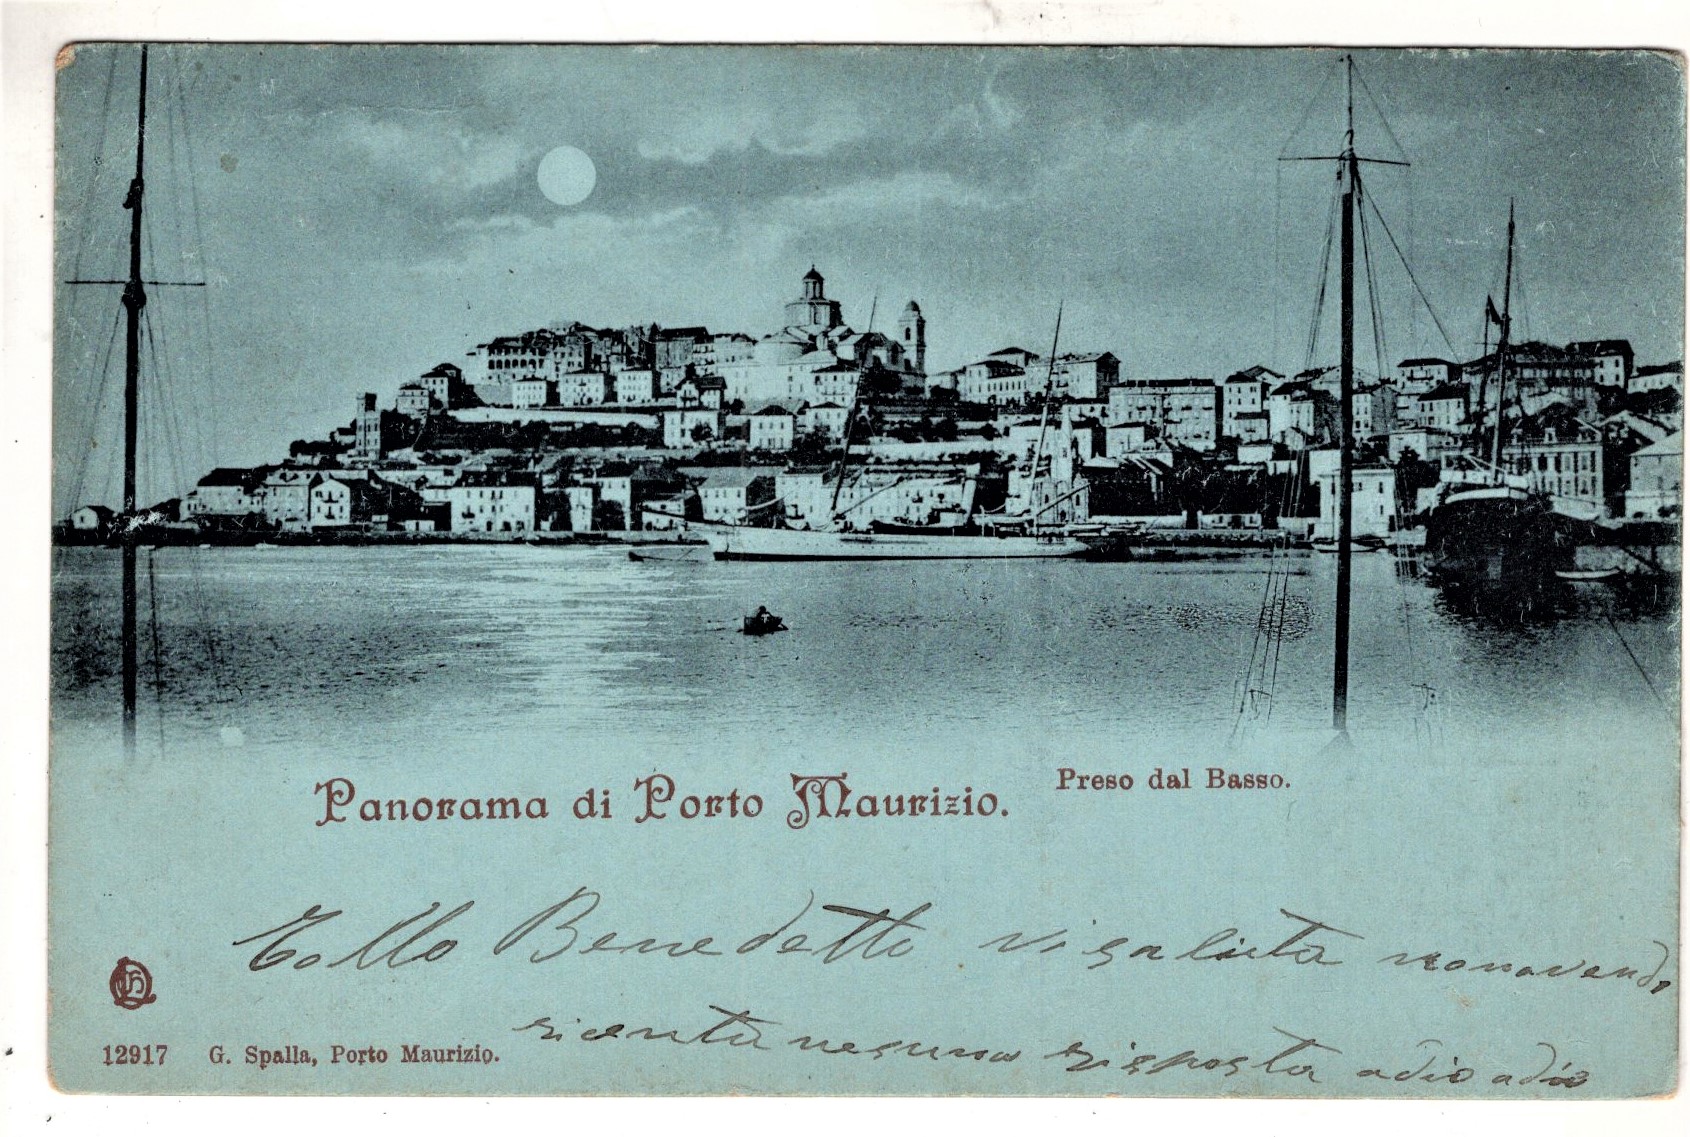 Panorama di Porto Maurizio.
Preso dal Basso.
Tollo Benedetto vi saluta non avend
ricevuta nesuna risposta adio adio
12917 G. Spalla, Porto Maurizio.